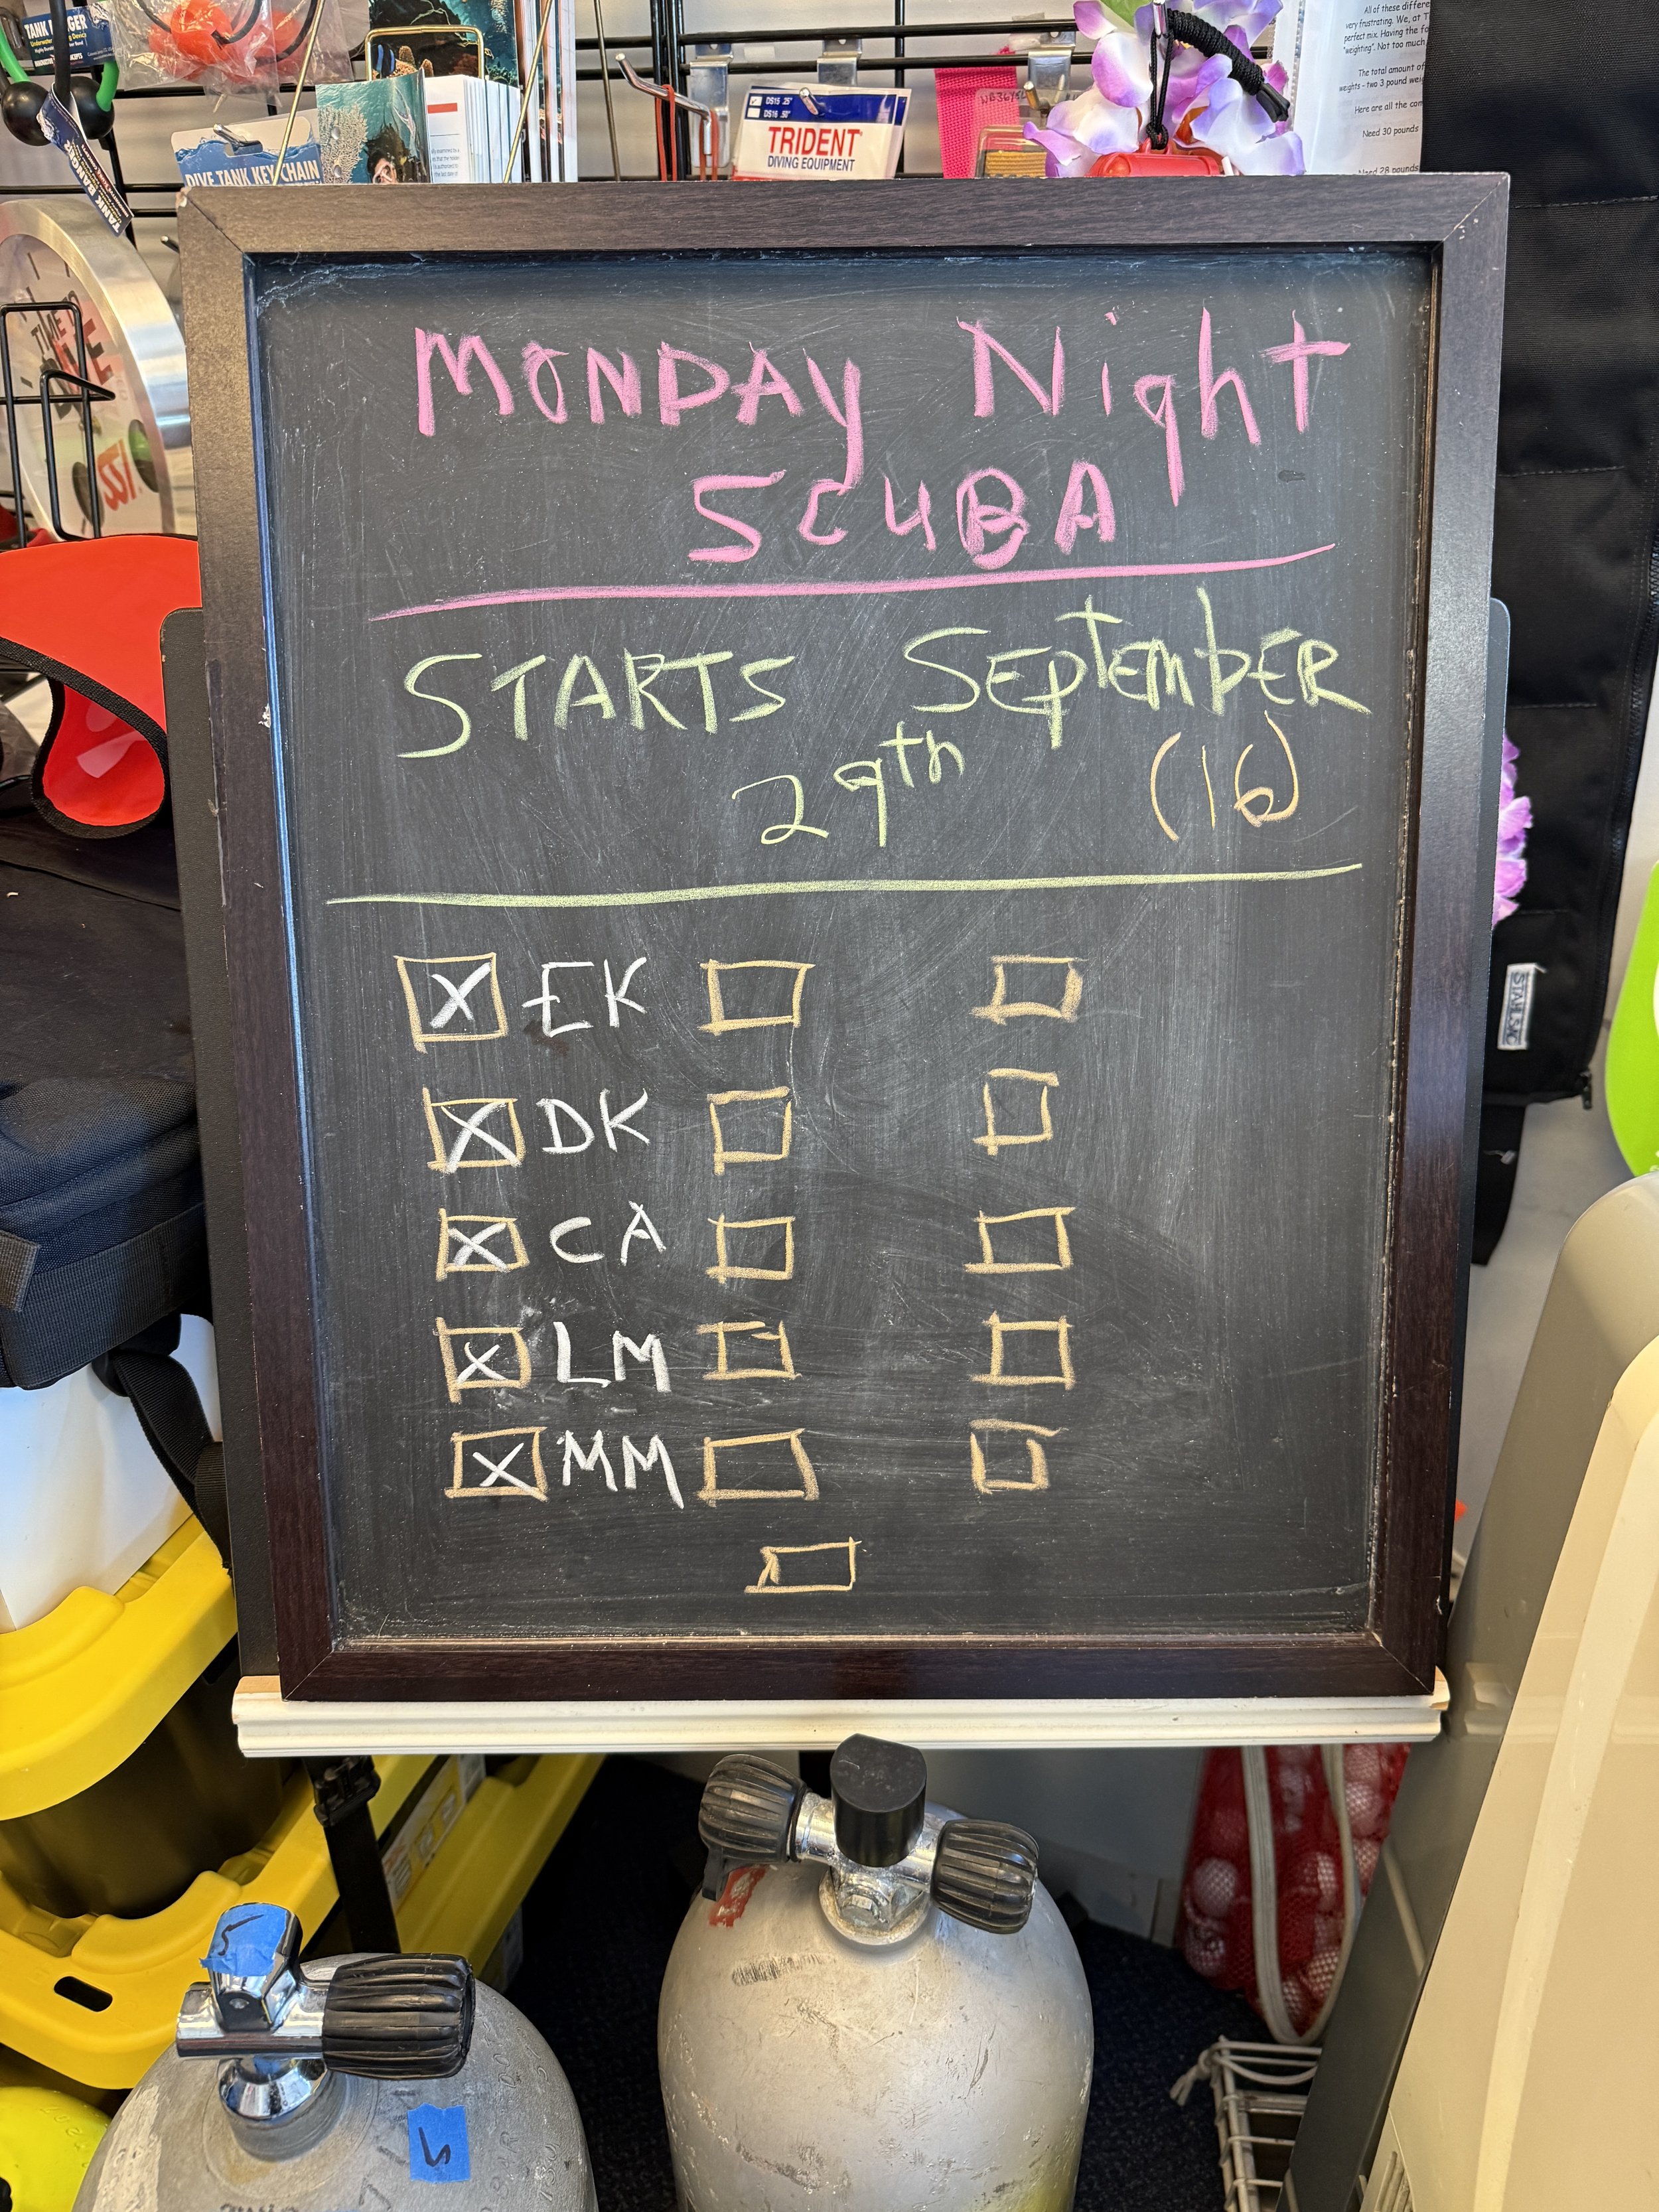 TANK BANGER
Underwater Signaling Device
DIVE TANK KEYCHAIN
DS15 .25"
DS16 .50"
TRIDENT
DIVING EQUIPMENT
All of these differe
very frustrating. We, at T
perfect mix. Having the fo
"weighting". Not too much
The total amount of
weights - two 3 pound wei
Here are all the com
Need 30 pounds
Need 28 pounds
TIME
MONDAY Night
SCUBA
STARTS SEPTEMBER
29th (16)
X EK
X DK
X CA
X LM
X MM
STAHLSAC